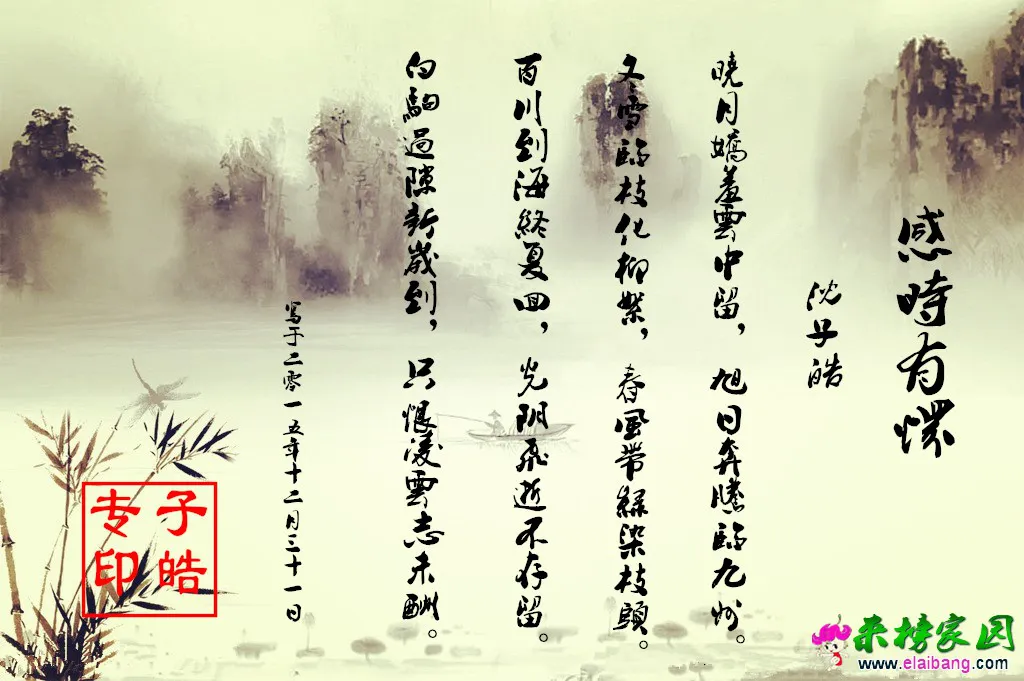 感時有懷
沈子皓
曉月嬌羞雲中留，旭日奔騰臨九州。
冬雪臨枝化柳絮，春風帶綠染枝頭。
百川到海終夏回，光阴飛逝不存留。
白駒過隙新歲到，只恨凌雲志未酬。
写于二零一五年十二月三十一日
子皓
专印
来榜家园
www.elaibang.com